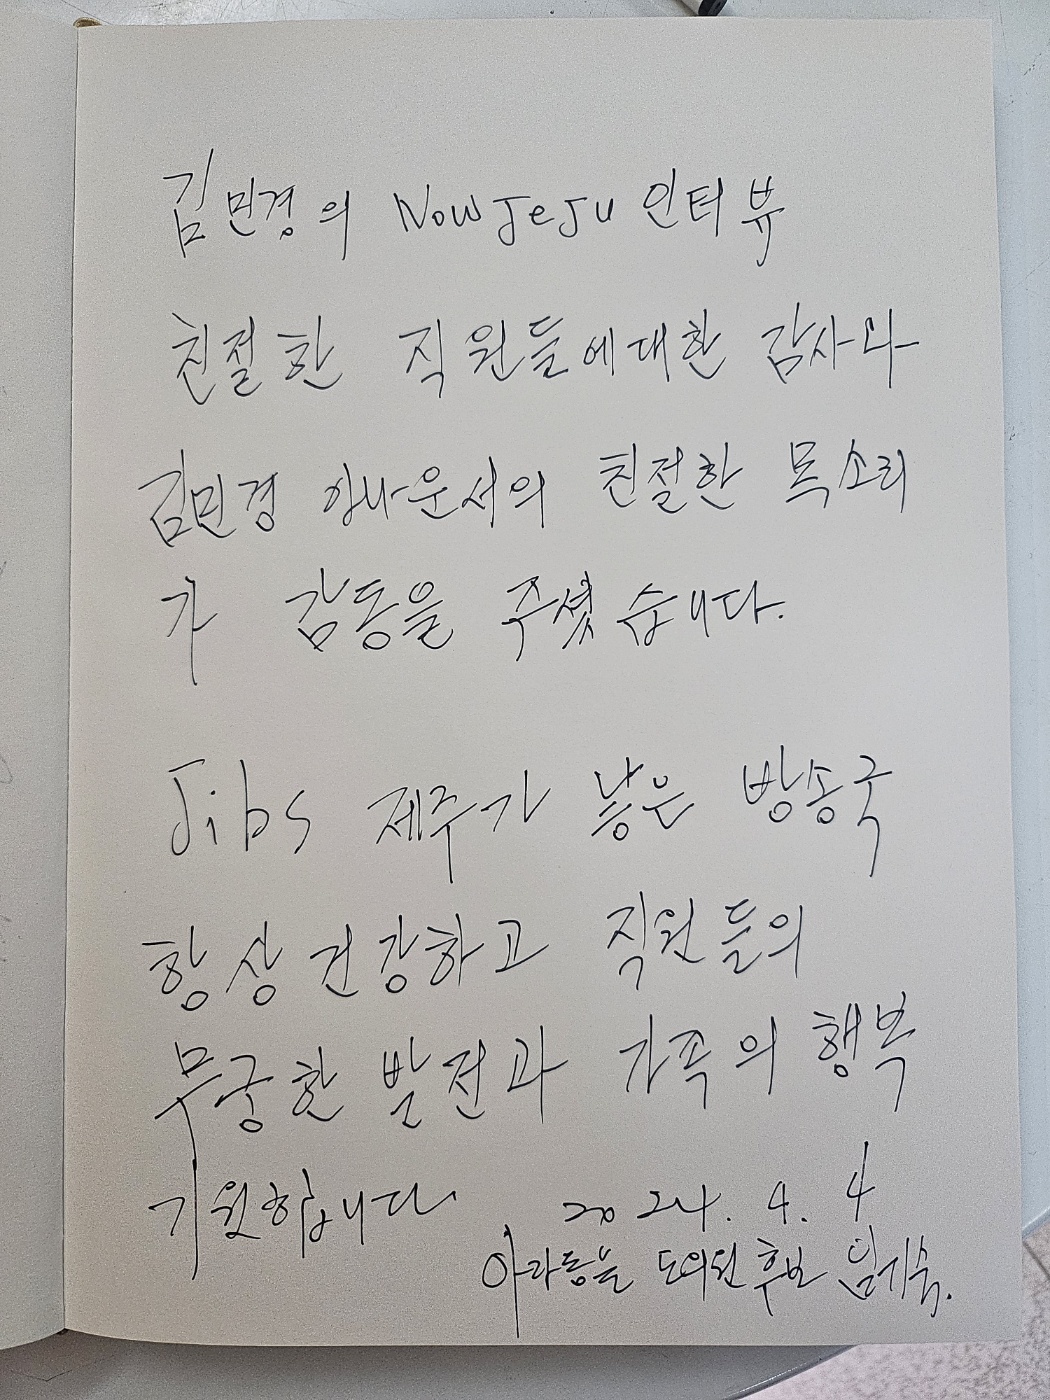 김민경의 Now JeJu 인터뷰
친절한 직원들에대한 감사와
김민경 아나운서의 친절한 목소리
가 감동을 주셨습니다.
Jibs 제주가 낳은 방송국
항상 건강하고 직원들의
무궁한 발전과 가족의 행복
기원합니다
2024. 4. 4
아라동을 도의원 후보 임기숙.